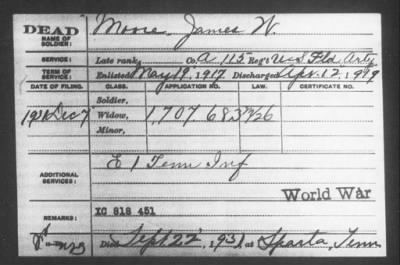 DEAD
NAME OF SOLDIER: Moore James W.
SERVICE: Late rank, Co. A 115 Reg't U.S. Fld Arty
TERM OF SERVICE: Enlisted May 19, 1917 Discharged Apr. 12, 1919
DATE OF FILING. CLASS. APPLICATION NO. LAW. CERTIFICATE NO.
Soldier,
1931 Dec 7 Widow, 1,707 683
Minor,
ADDITIONAL SERVICES: E 1 Tenn Inf
World War
REMARKS: XC 818 451
Died Sept 22, 1931 at Sparta, Tenn